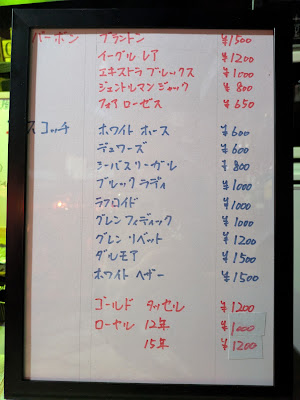 バーボン ブラントン ¥1500
イーグル レア ¥1200
エキストラ ブルックス ¥1000
ジェントルマン ジャック ¥800
フォア ローゼス ¥650
スコッチ ホワイト ホース ¥600
デュワーズ ¥600
シーバスリーガル ¥800
ブルック ラディ ¥1000
ラフロイド ¥1000
グレンフィディック ¥1000
グレン リベット ¥1200
ダルモア ¥1500
ホワイト ヘザー ¥1500
ゴールド タッセル ¥1200
ローヤル 12年 ¥1000
15年 ¥1200